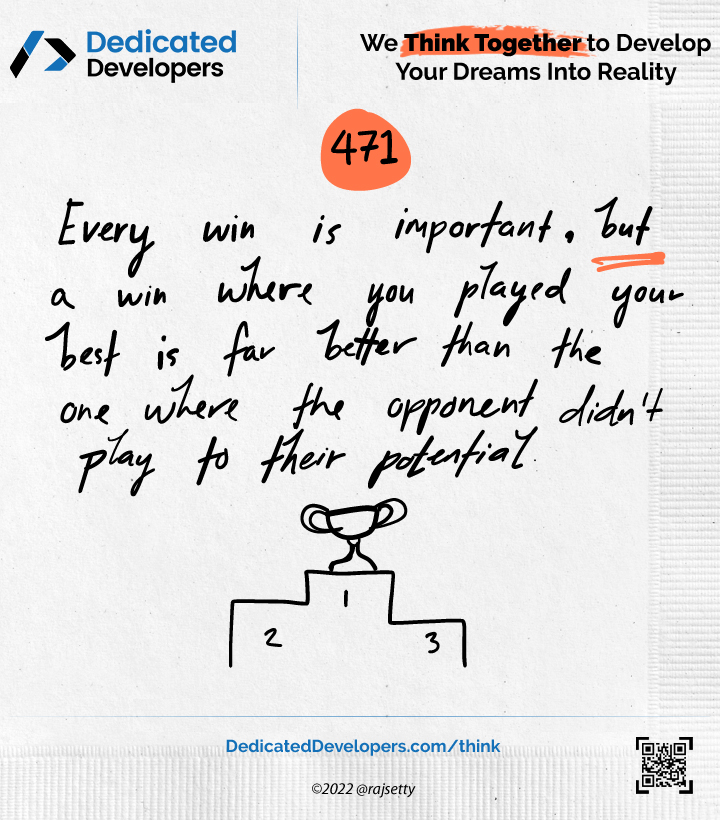 Dedicated
Developers
We Think Together to Develop
Your Dreams Into Reality
471
Every win is important, but
a win where you played your
best is far better than the
one where the opponent didn't
play to their potential.
1
2
3
DedicatedDevelopers.com/think
©2022 @rajsetty